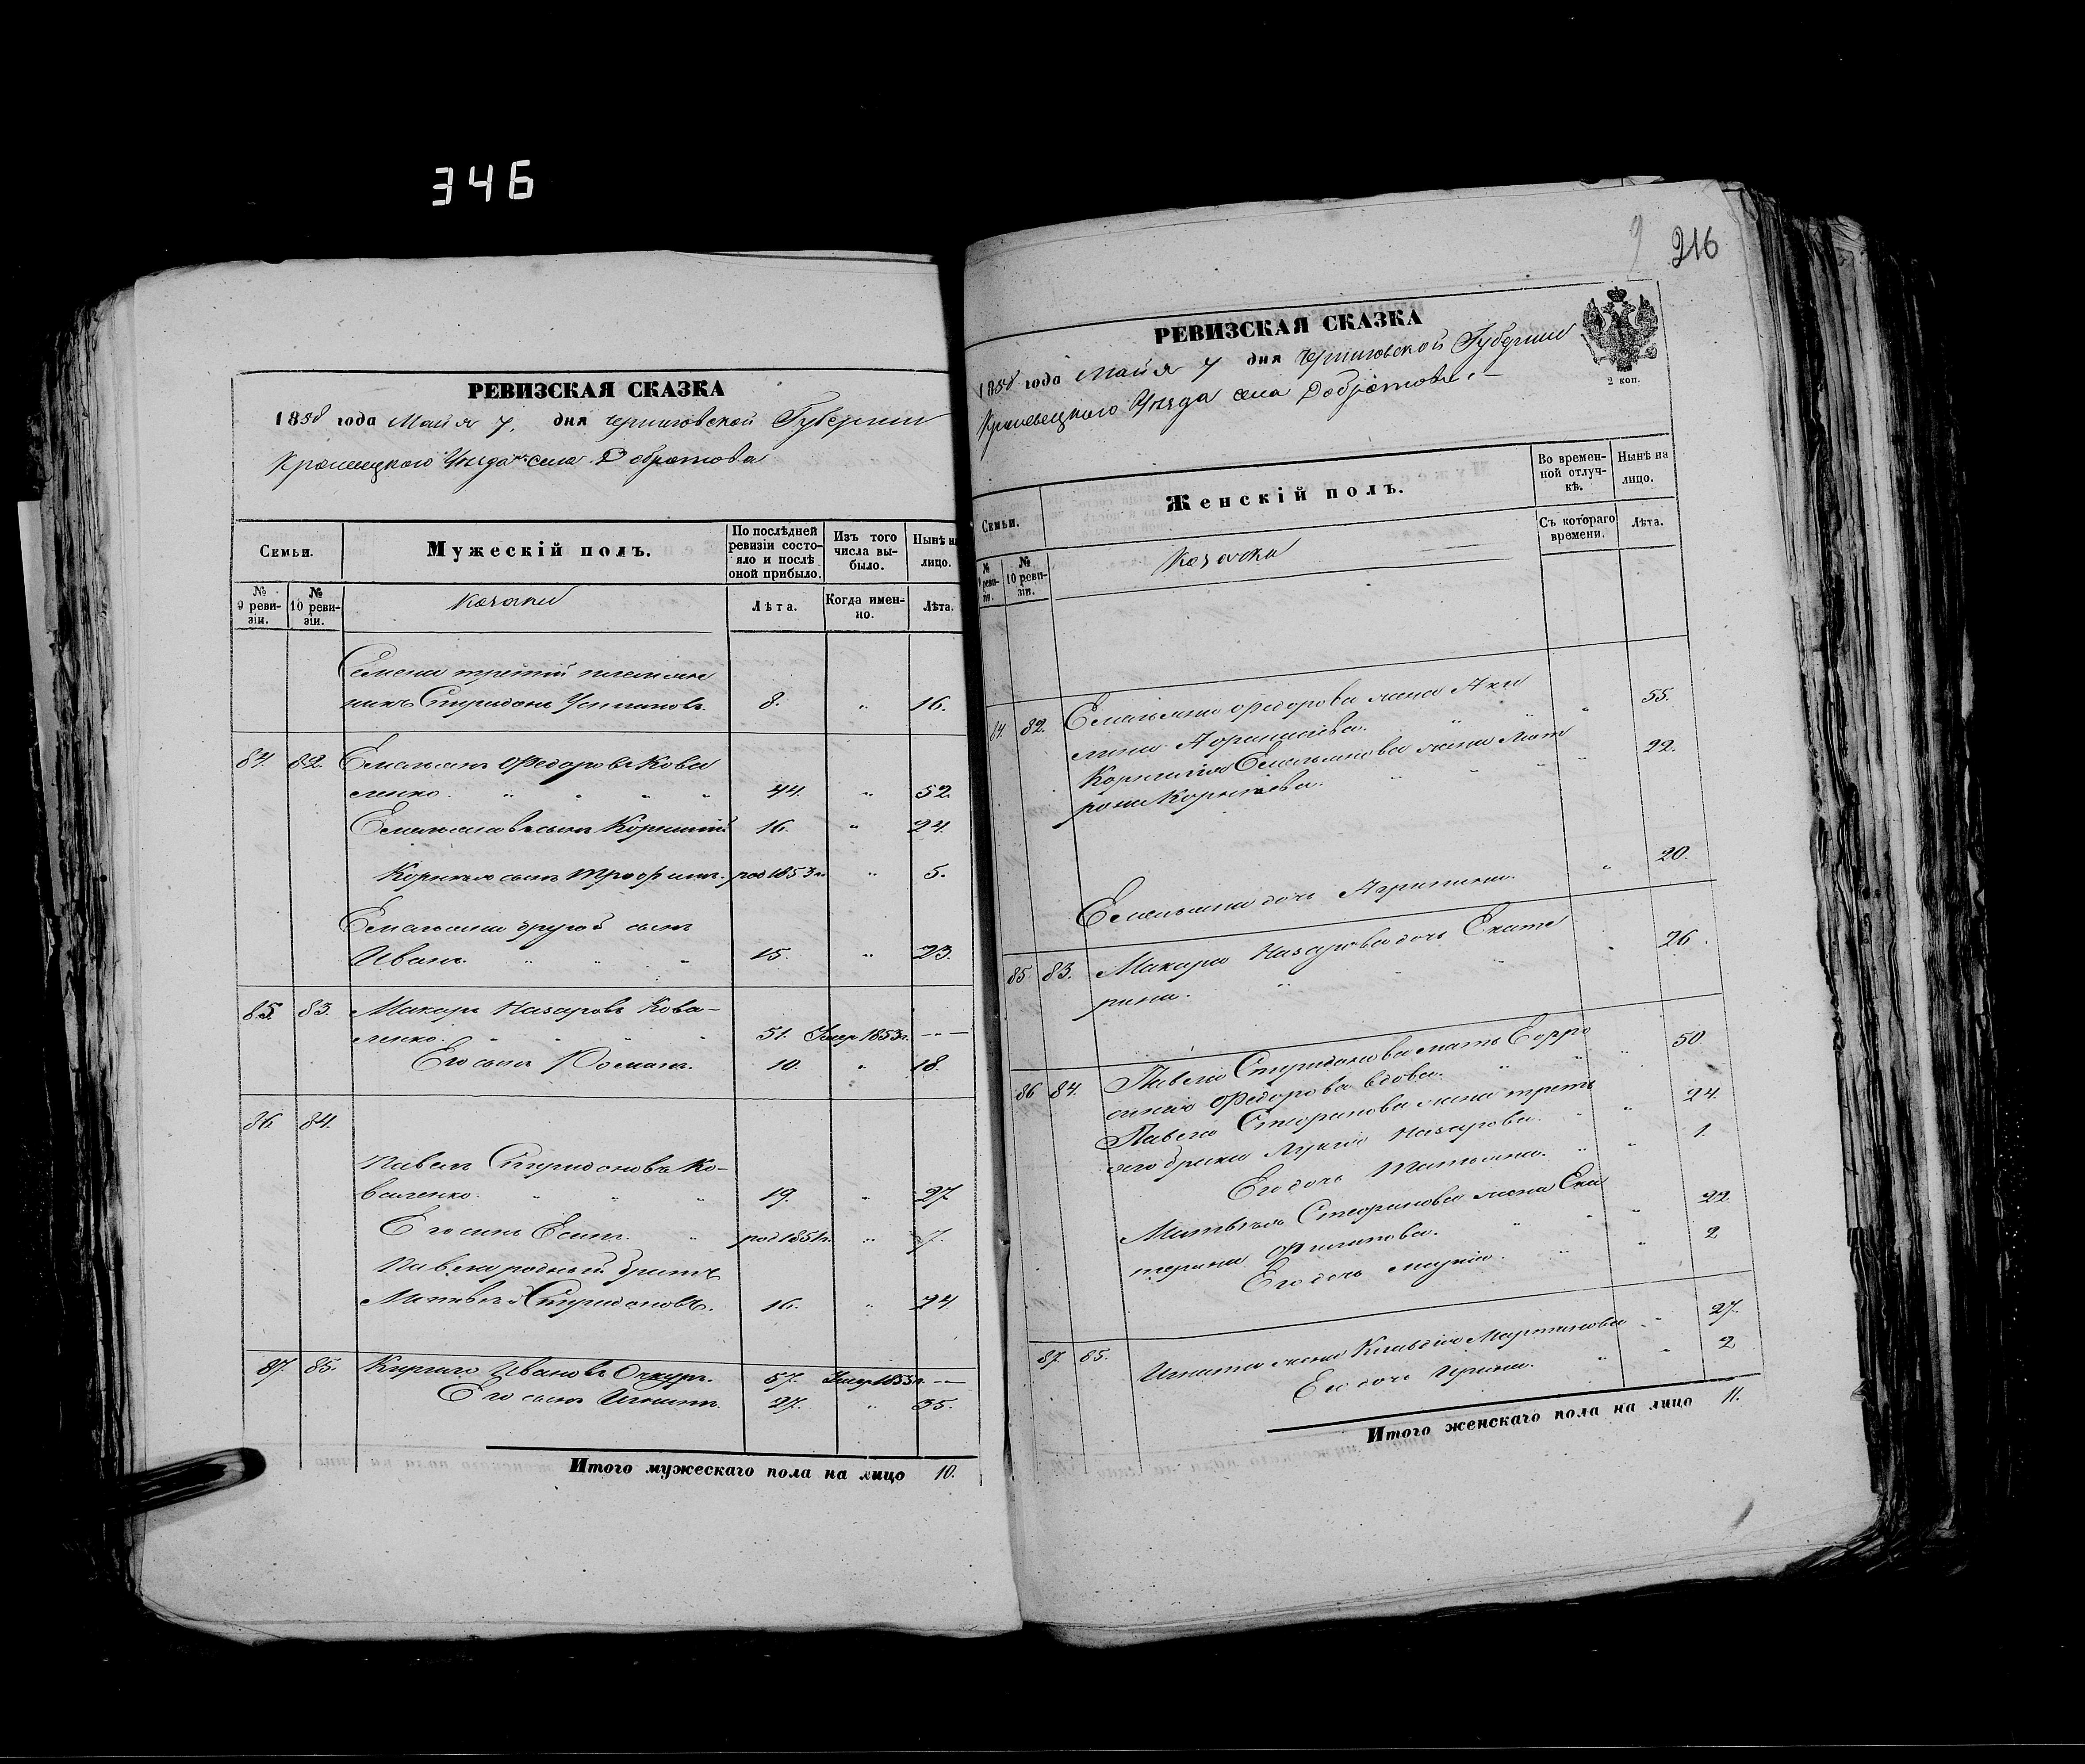 346
РЕВИЗСКАЯ СКАЗКА
1858 года Майя 7. дня Черниговской Губернии
Кролевецкого Уезда села Добротова
Семьи.
Мужескій полъ.
По послѣдней ревизіи состояло и послѣ оной прибыло.
Изъ того числа выбыло.
Нынѣ на лицо.
№ 9 ревизіи.
№ 10 ревизіи.
Козаки
Лѣта.
Когда именно.
Лѣта.
Семена третій племян
никъ Спиридонъ Устиновъ. 8. " 16.
84. 82. Емельянъ Федоровъ Кова
ленко. " " " " 44. " 52.
Емельяновъ сынъ Корнилій 16. " 24.
Корнилія сынъ Трофимъ. род 1853 г. " 5.
Емельяна другой сынъ
Иванъ. " " " 15. " 23.
85. 83. Макаръ Назаровъ Кова-
ленко. " " " 51. Умер 1853 г. ---
Его сынъ Романъ. 10. " 18.
86. 84.
Павелъ Спиридоновъ Ко-
валенко. " " " 19. " 27
Его сынъ Есипъ. " род 1851 г. " 7.
Павла родный братъ
Матвѣй Спиридоновъ. 16. " 24
87. 85. Кирило Ивановъ 57. Умер 1853 г. ---
Его сынъ Игнатъ. 27. " 35.
Итого мужескаго пола на лицо 10.
9 216
РЕВИЗСКАЯ СКАЗКА
1858 года Майя 7 дня Черниговской Губернии
Кролевецкого Уезда села Добротова
2 коп.
Семьи.
Женскій полъ.
Во временной отлучкѣ.
Нынѣ на лицо.
№ 9 ревизіи.
№ 10 ревизіи.
Козачки
Съ котораго времени.
Лѣта.
84. 82. Емельяна Федорова жена Аки
лина " " " 55.
Корнилія Емельянова жена Мат
рона " " " " 22.
Емельяна дочь Агрипина. " 20.
85 83. Макара Назарова дочь Екате
рина. " " " 26.
86 84. Павла Спиридонова мать Евфро
синія Федорова вдова. " " " 50
Павла жена треть
яго брака Назарова. " " 24.
Его дочь Татьяна. " " 1.
Матвѣя жена Ека
терина Филипова. " " " 22.
Его дочь Марія. " " 2
87. 85. Игната жена Клавдія Мартинова " " 27.
Его дочь Ирина. " " 2
Итого женскаго пола на лицо 11.